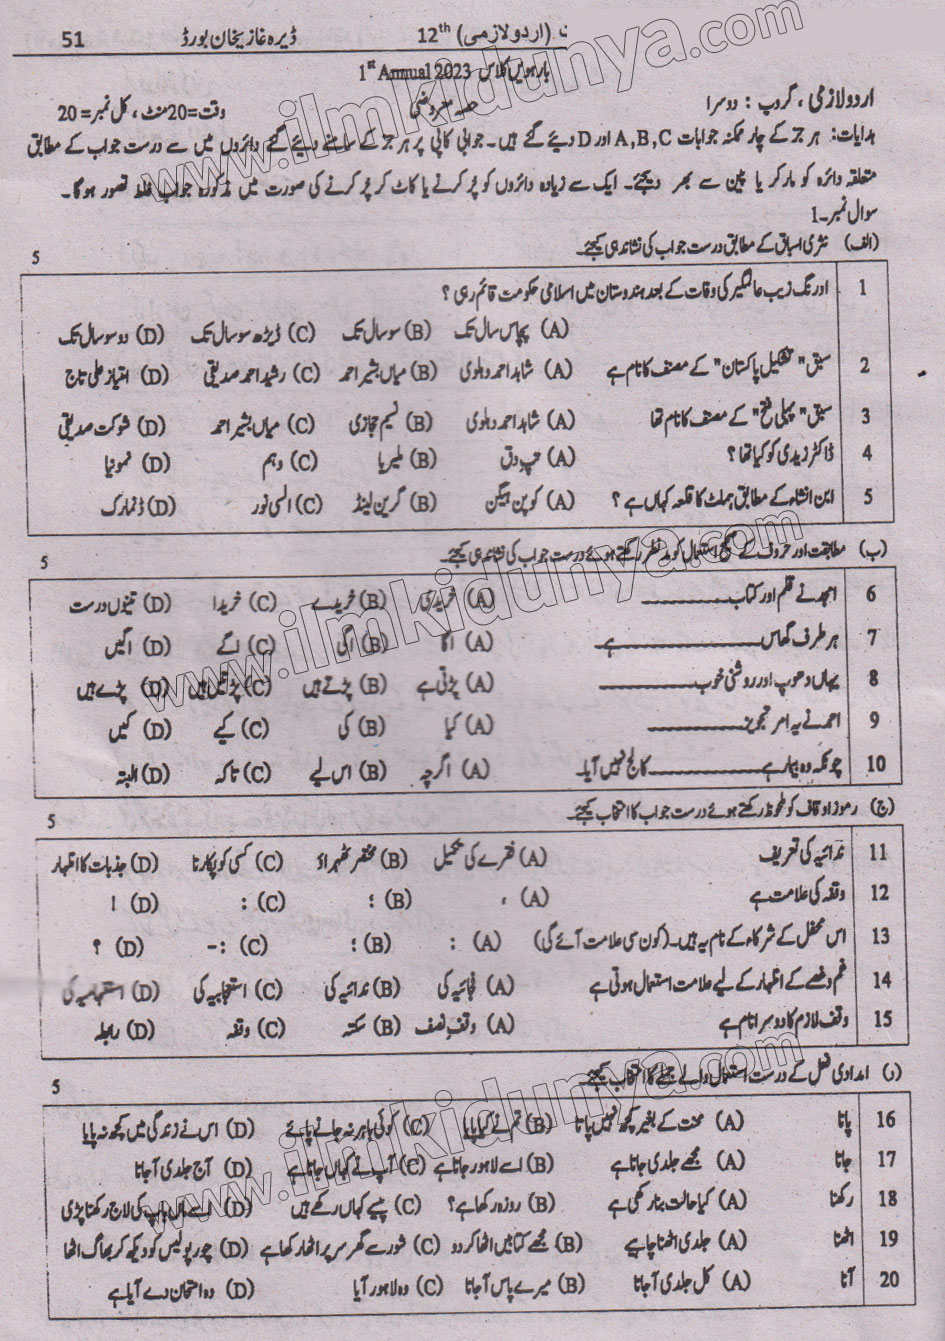 51 ڈیرہ غازیخان بورڈ (اردو لازمی) 12th
بارہویں کلاس 1st Annual 2023
اردو لازمی ، گروپ : دوسرا حصہ معروضی وقت=20منٹ ، کل نمبر=20
ہدایات: ہر جز کے چار ممکنہ جوابات A,B,C اور D دیئے گئے ہیں۔ جوابی کاپی پر ہر جز کے سامنے دیئے گئے دائروں میں سے درست جواب کے مطابق
متعلقہ دائرہ کو مارکر یا پین سے بھر دیجئے۔ ایک سے زیادہ دائروں کو پُر کرنے یا کاٹ کر پُر کرنے کی صورت میں مذکورہ جواب غلط تصور ہوگا۔
سوال نمبر۔1
(الف) نثری اسباق کے مطابق درست جواب کی نشاندہی کیجئے۔ 5
1 اورنگ زیب عالمگیر کی وفات کے بعد ہندوستان میں اسلامی حکومت قائم رہی ؟
(A) پچاس سال تک (B) سو سال تک (C) ڈیڑھ سو سال تک (D) دو سو سال تک
2 سبق "تشکیل پاکستان" کے مصنف کا نام ہے (A) شاہد احمد دہلوی (B) میاں بشیر احمد (C) رشید احمد صدیقی (D) امتیاز علی تاج
3 سبق "پہلی فتح" کے مصنف کا نام تھا (A) شاہد احمد دہلوی (B) نسیم حجازی (C) میاں بشیر احمد (D) شوکت صدیقی
4 ڈاکٹر زیدی کو کیا تھا ؟ (A) تپ دق (B) ملیریا (C) وہم (D) نمونیا
5 ابن انشاء کے مطابق ہملٹ کا قلعہ کہاں ہے ؟ (A) کوپن ہیگن (B) گرین لینڈ (C) السی نور (D) ڈنمارک
(ب) مطابقت اور حروف کے صحیح استعمال کو مدنظر رکھتے ہوئے درست جواب کی نشاندہی کیجئے۔ 5
6 امجد نے قلم اور کتاب ۔۔۔۔۔۔۔۔۔ (A) خریدی (B) خریدے (C) خریدا (D) تینوں درست
7 ہر طرف گھاس ۔۔۔۔۔۔۔۔۔ ہے۔ (A) اگا (B) اگی (C) اگے (D) اگیں
8 یہاں دھوپ اور روشنی خوب ۔۔۔۔۔۔۔۔۔ (A) پڑتی ہے (B) پڑتے ہیں (C) پڑتیں ہیں (D) پڑے ہیں
9 احمد نے یہ امر تجویز ۔۔۔۔۔۔۔۔۔ (A) کیا (B) کی (C) کیے (D) کیں
10 چونکہ وہ بیمار ہے ۔۔۔۔۔۔۔۔۔ کالج نہیں آیا۔ (A) اگرچہ (B) اس لیے (C) تاکہ (D) البتہ
(ج) رموز اوقاف کو ملحوظ رکھتے ہوئے درست جواب کا انتخاب کیجئے۔ 5
11 ندائیہ کی تعریف (A) فقرے کی تکمیل (B) مختصر ٹھہراؤ (C) کسی کو پکارنا (D) جذبات کا اظہار
12 وقفہ کی علامت ہے (A) ، (B) ؛ (C) : (D) !
13 اس محفل کے شرکاء کے نام یہ ہیں۔ (کون سی علامت آئے گی) (A) : (B) ؛ (C) :- (D) ؟
14 غم و غصے کے اظہار کے لیے علامت استعمال ہوتی ہے (A) فجائیہ کی (B) ندائیہ کی (C) استعجابیہ کی (D) استفہامیہ کی
15 وقف لازم کا دوسرا نام ہے (A) وقف نصف (B) سکتہ (C) وقفہ (D) رابطہ
(د) امدادی فعل کے درست استعمال والے جملے کا انتخاب کیجئے۔ 5
16 پانا (A) محنت کے بغیر کچھ نہیں پاتا (B) تم نے کیا پایا (C) کوئی باہر نہ جانے پائے (D) اس نے زندگی میں کچھ نہ پایا
17 جانا (A) مجھے جلدی جانا ہے (B) اسے لاہور جانا ہے (C) آپ نے کہاں جانا ہے (D) آج جلدی آ جانا
18 رکھنا (A) کیا حالت بنا رکھی ہے (B) روزہ رکھا ہے؟ (C) پیسے کہاں رکھے ہیں (D) اسے ماں باپ کی لاج رکھنا پڑی
19 اٹھنا (A) جلدی اٹھنا چاہیے (B) مجھے کتابیں اٹھا کر دو (C) شور سے گھر سر پر اٹھا رکھا ہے (D) چور پولیس کو دیکھ کر بھاگ اٹھا
20 آنا (A) کل جلدی آ جانا (B) میرے پاس آ جانا (C) وہ لاہور آیا (D) وہ امتحان دے آیا ہے
www.ilmkidunya.com
www.ilmkidunya.com
www.ilmkidunya.com